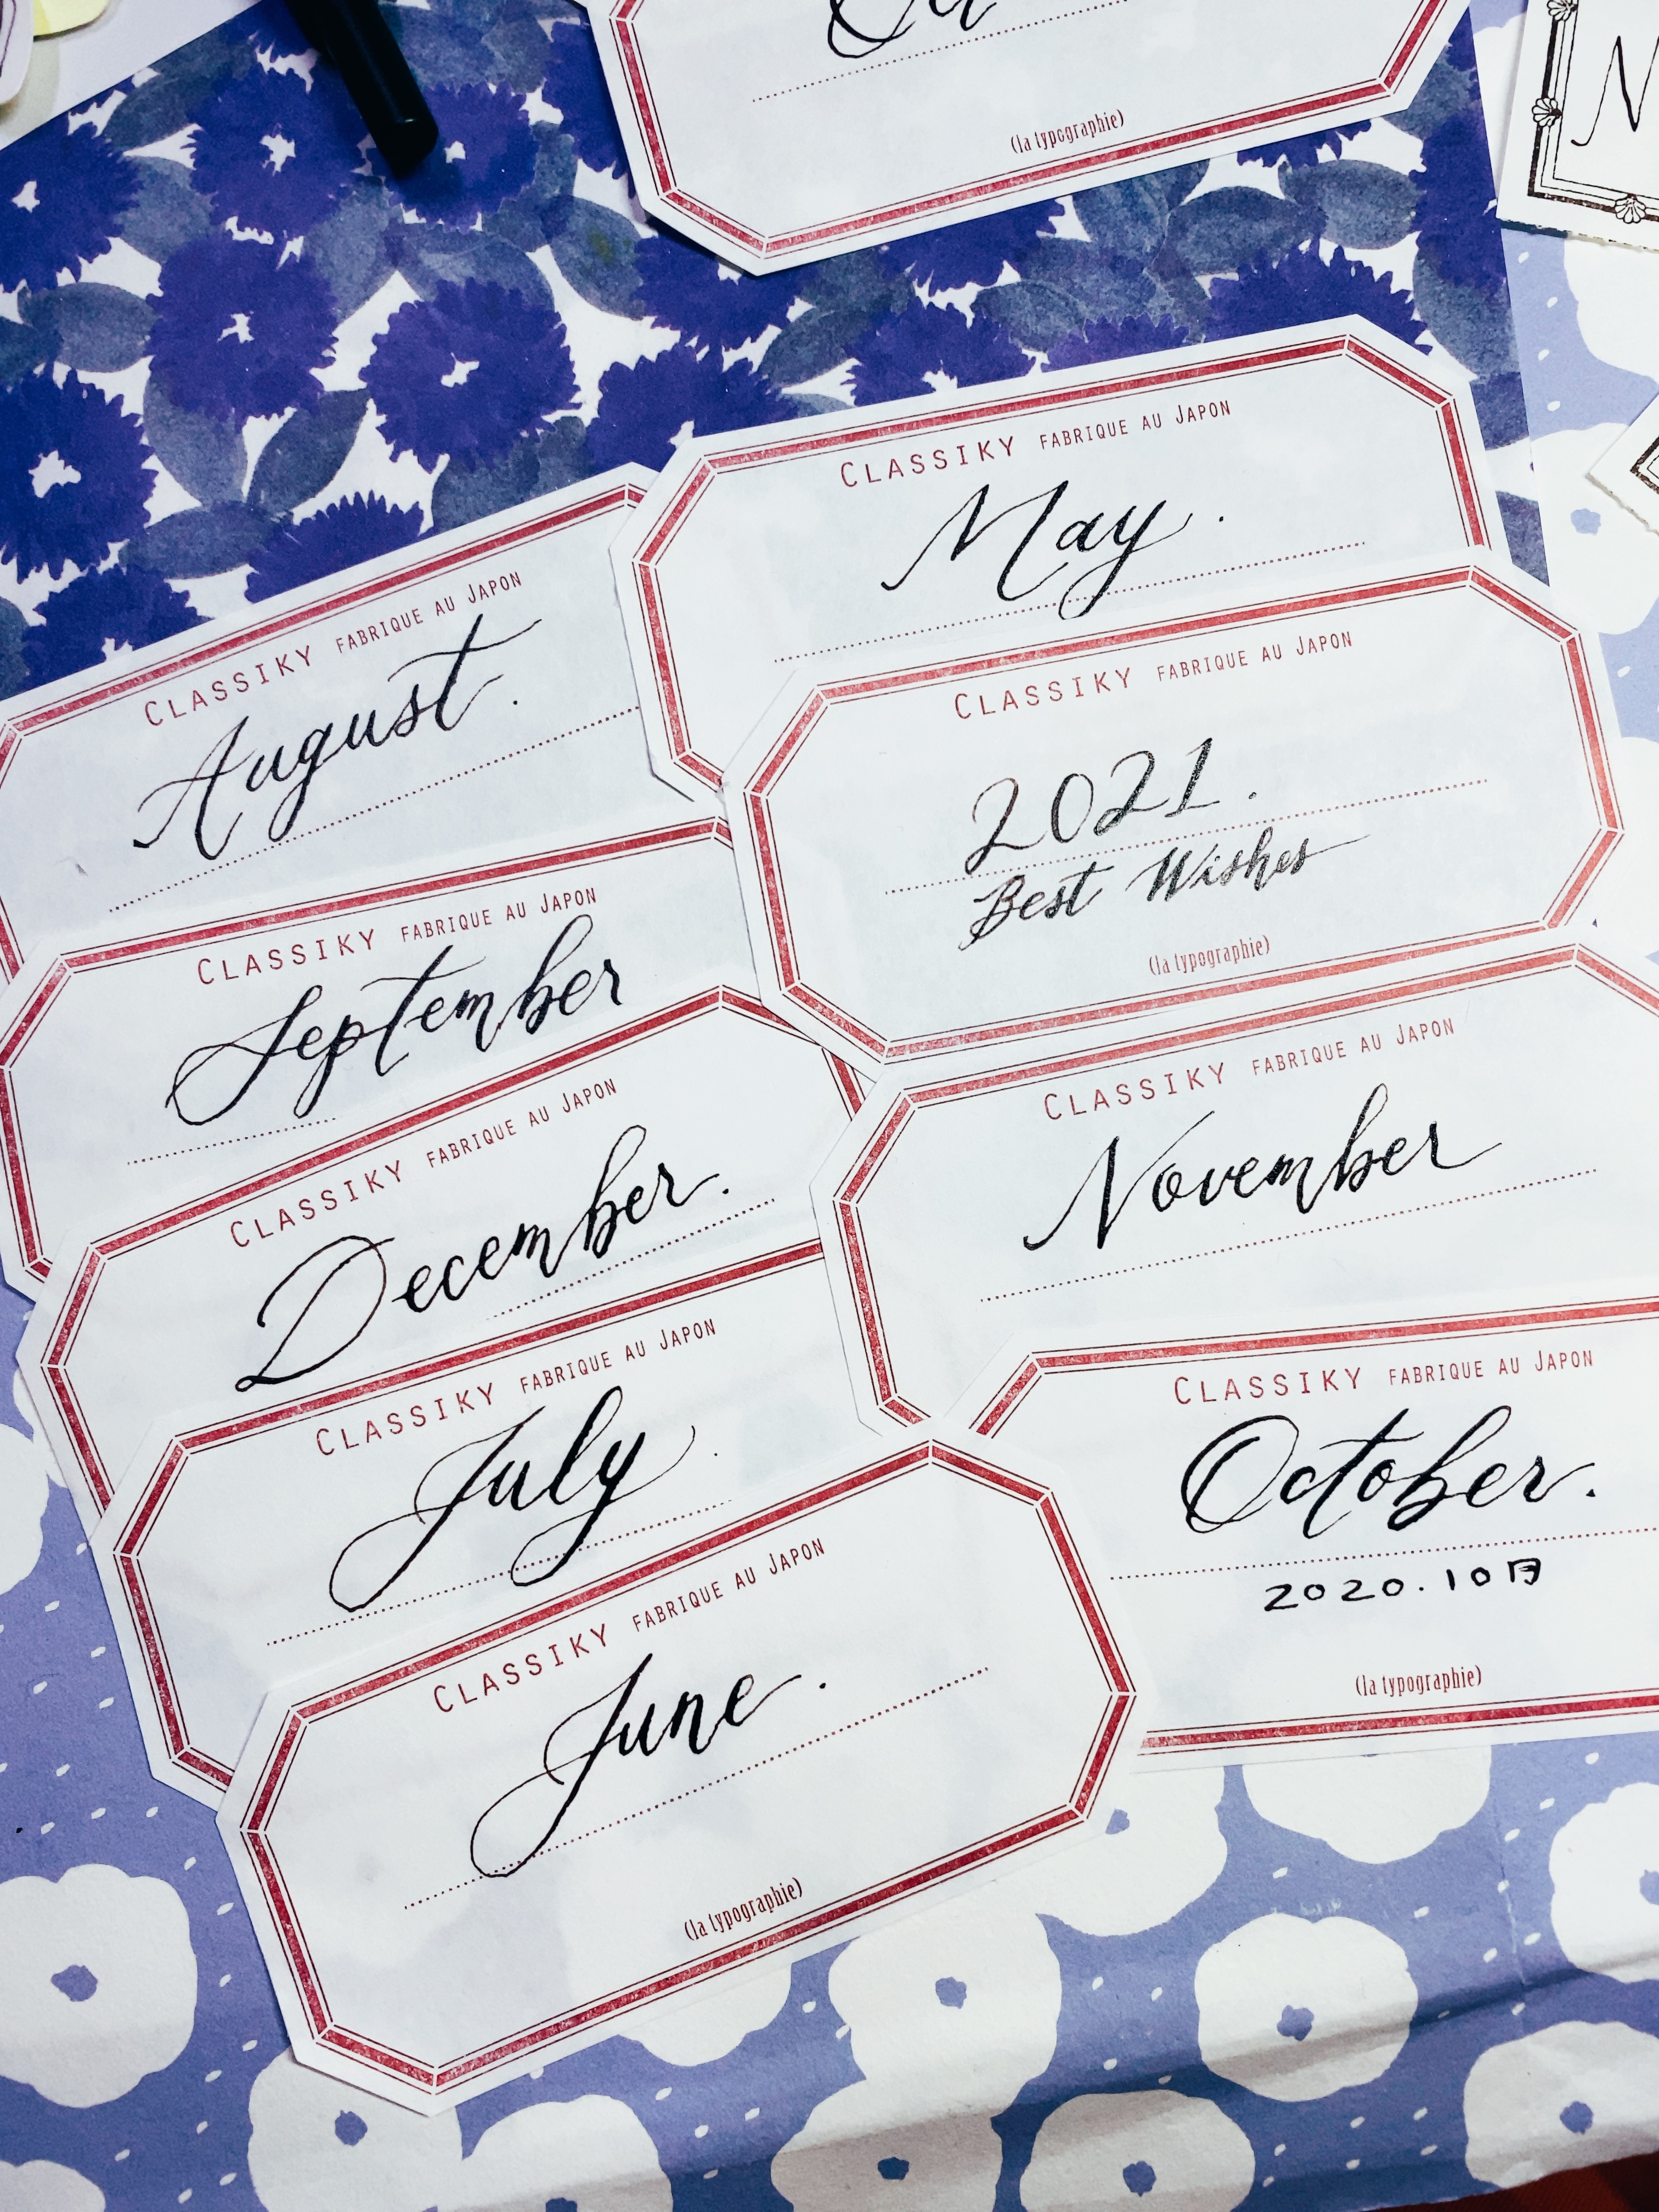 (la typographie)
N
CLASSIKY FABRIQUE AU JAPON
May.
CLASSIKY FABRIQUE AU JAPON
August.
CLASSIKY FABRIQUE AU JAPON
2021.
Best Wishes
(la typographie)
CLASSIKY FABRIQUE AU JAPON
September
CLASSIKY FABRIQUE AU JAPON
December.
CLASSIKY FABRIQUE AU JAPON
November
CLASSIKY FABRIQUE AU JAPON
July.
CLASSIKY FABRIQUE AU JAPON
October.
2020.10月
(la typographie)
CLASSIKY FABRIQUE AU JAPON
June.
(la typographie)